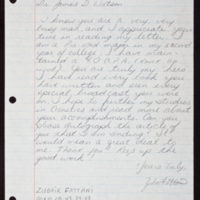 Dr. James D Watson
I know you are a very, very
busy man, and I appreciate your
time in reading my letter. I
am a Pre med major in my second
year of college. I have main-
tained a 4.0 G.P.A. (once as
well). You are truly my hero
I have read every book you
have written and seen every
special broadcast you were
on. I hope to further my studies
in Genetics and read more about
your accomplishments. Can you
please Autograph the article of
you that I am sending? It
would mean a great deal to
me. Thank you! Keep up the
good work!
Yours Truly,